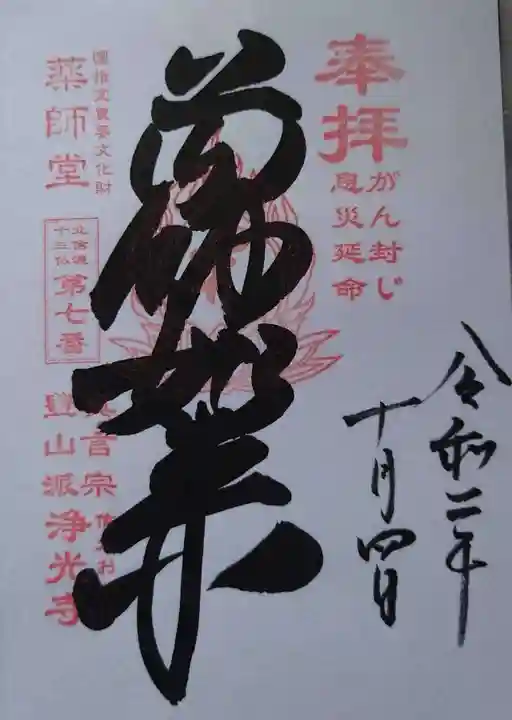 奉拝
がん封じ
息災延命
令和二年
十月四日
薬師如来
国指定重要文化財
薬師堂
北信濃
十三仏
第七番
真言宗
豊山派
浄光寺